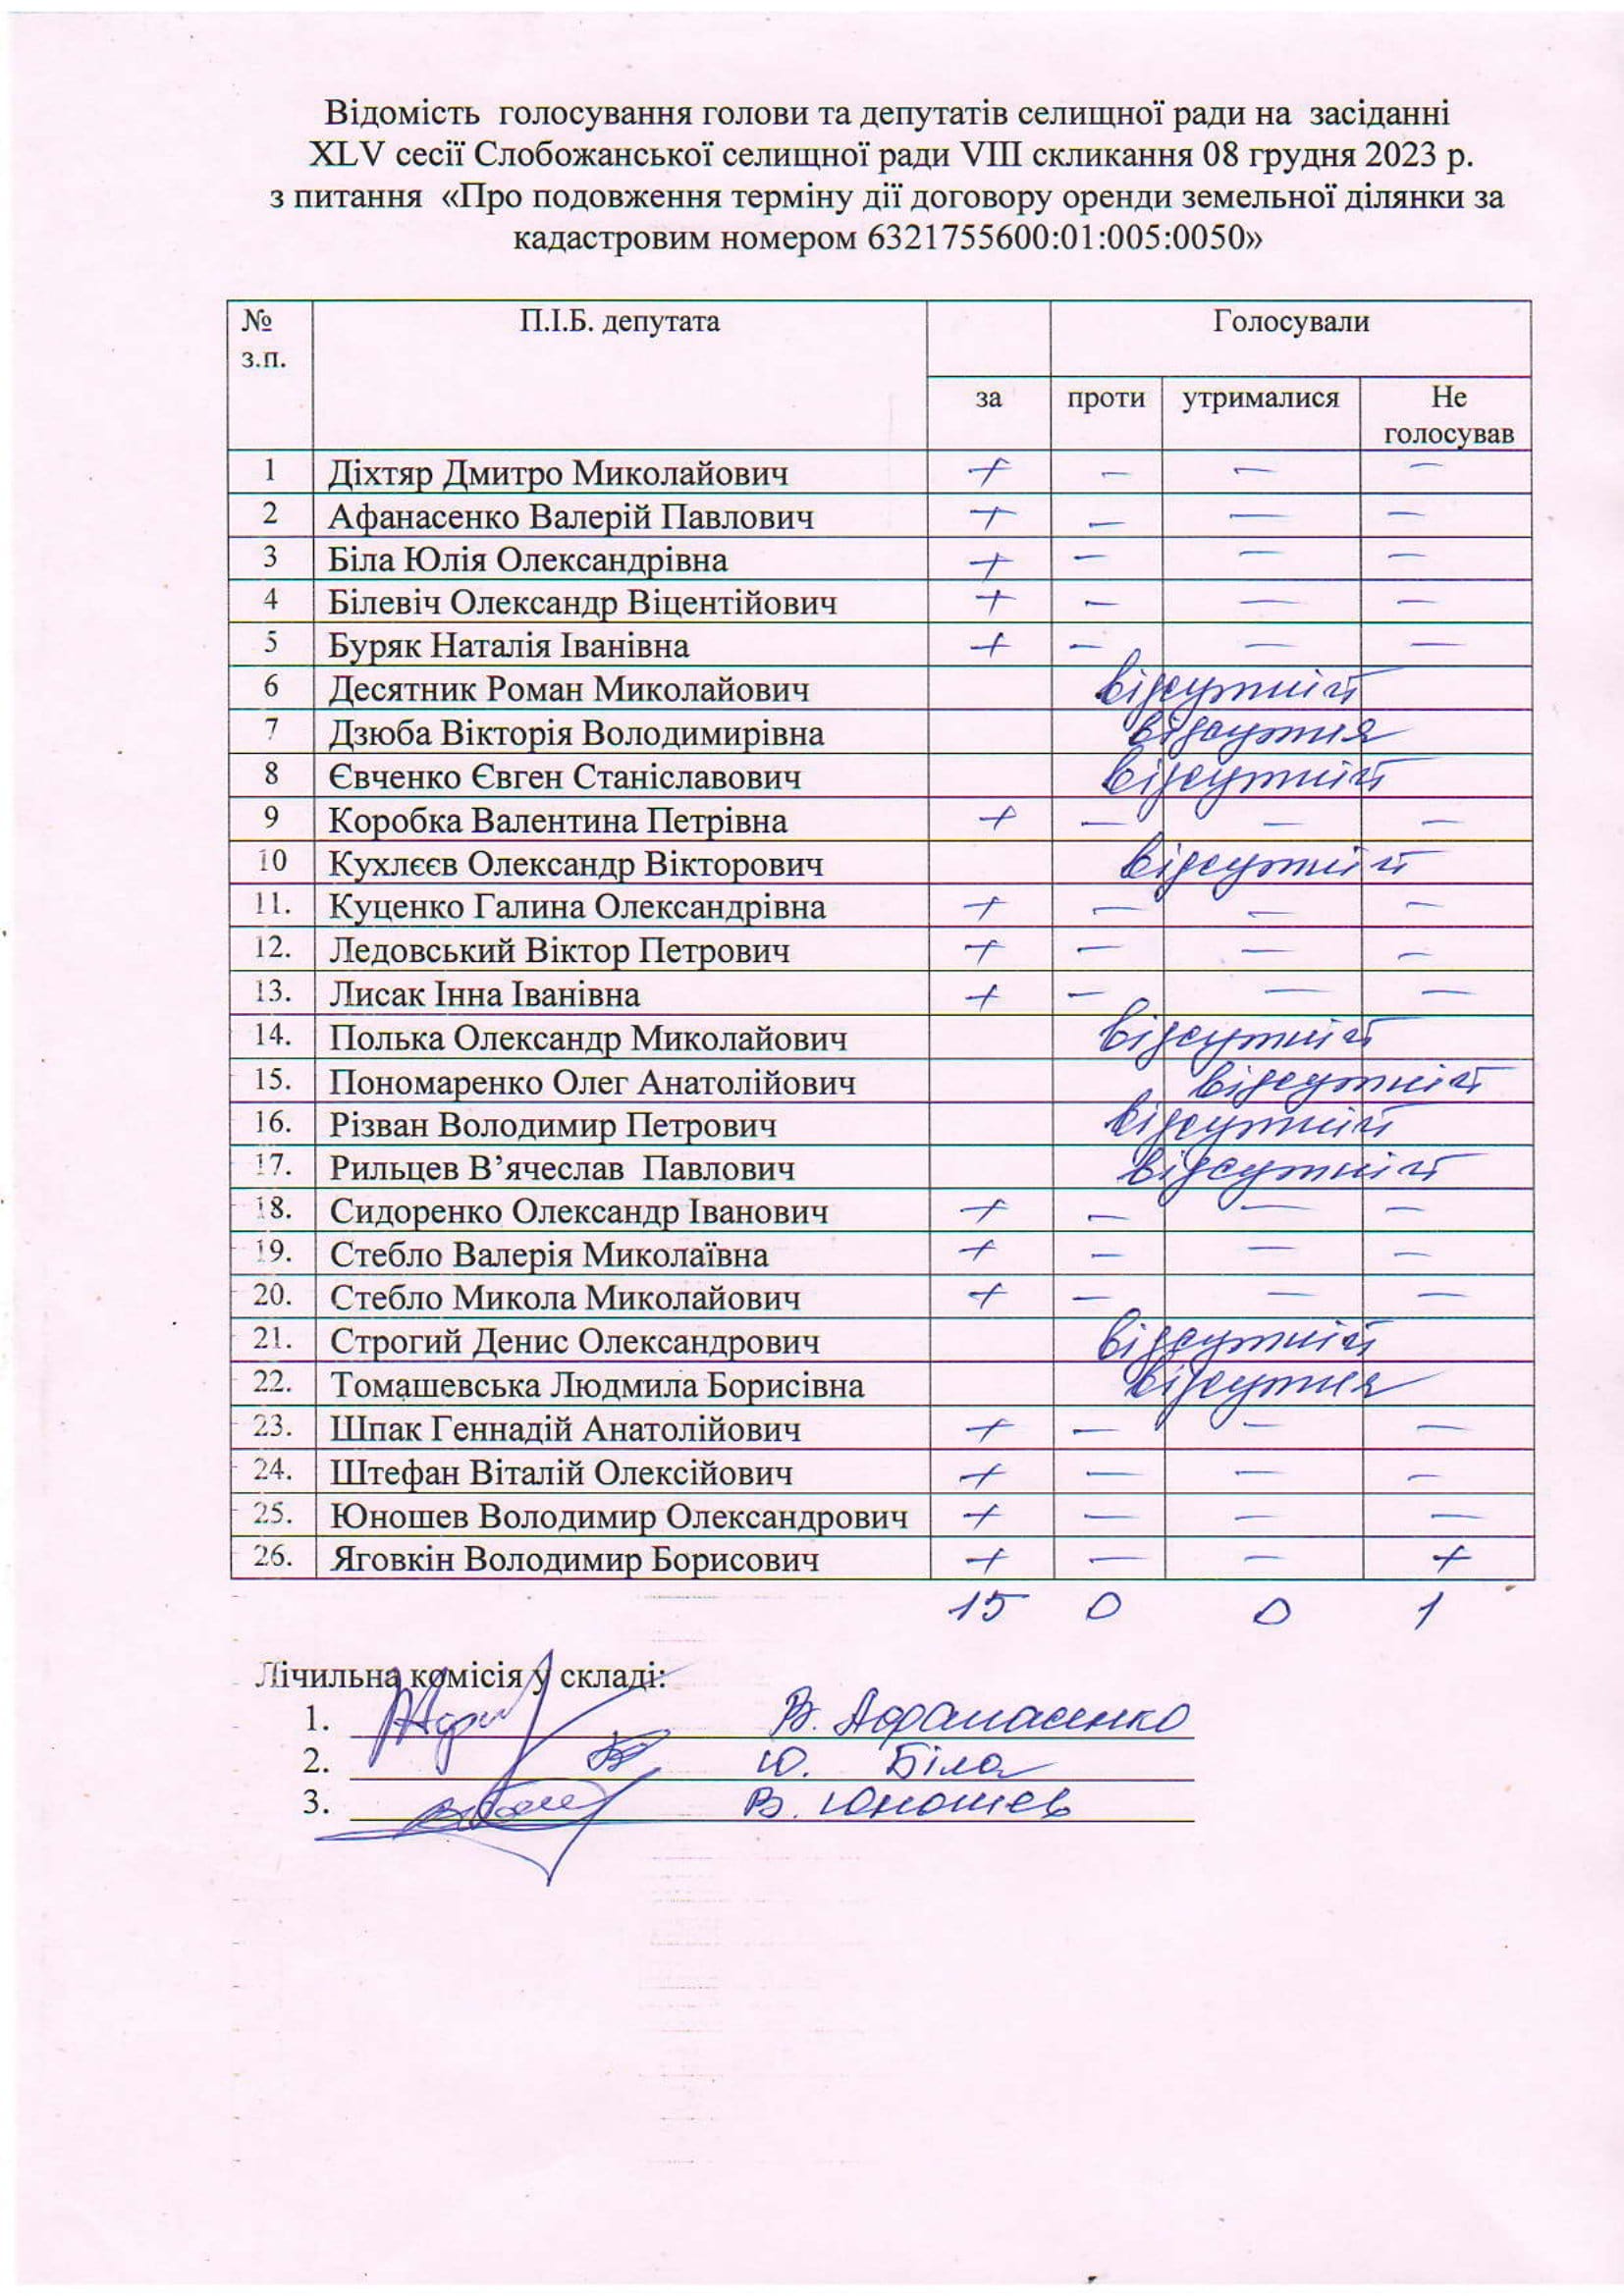 Відомість голосування голови та депутатів селищної ради на засіданні
XLV сесії Слобожанської селищної ради VIII скликання 08 грудня 2023 р.
з питання «Про подовження терміну дії договору оренди земельної ділянки за
кадастровим номером 6321755600:01:005:0050»
№ з.п. П.І.Б. депутата Голосували
за проти утрималися Не голосував
1 Діхтяр Дмитро Миколайович + – – –
2 Афанасенко Валерій Павлович + – – –
3 Біла Юлія Олександрівна + – – –
4 Білевіч Олександр Віцентійович + – – –
5 Буряк Наталія Іванівна + – – –
6 Десятник Роман Миколайович відсутній
7 Дзюба Вікторія Володимирівна відсутня
8 Євченко Євген Станіславович відсутній
9 Коробка Валентина Петрівна + – – –
10 Кухлєєв Олександр Вікторович відсутній
11. Куценко Галина Олександрівна + – – –
12. Ледовський Віктор Петрович + – – –
13. Лисак Інна Іванівна + – – –
14. Полька Олександр Миколайович відсутній
15. Пономаренко Олег Анатолійович відсутній
16. Різван Володимир Петрович відсутній
17. Рильцев В’ячеслав Павлович відсутній
18. Сидоренко Олександр Іванович + – – –
19. Стебло Валерія Миколаївна + – – –
20. Стебло Микола Миколайович + – – –
21. Строгий Денис Олександрович відсутній
22. Томашевська Людмила Борисівна відсутня
23. Шпак Геннадій Анатолійович + – – –
24. Штефан Віталій Олексійович + – – –
25. Юношев Володимир Олександрович + – – –
26. Яговкін Володимир Борисович + – – +
15 0 0 1
Лічильна комісія у складі:
1. В. Афанасенко
2. Ю. Біла
3. В. Юношев